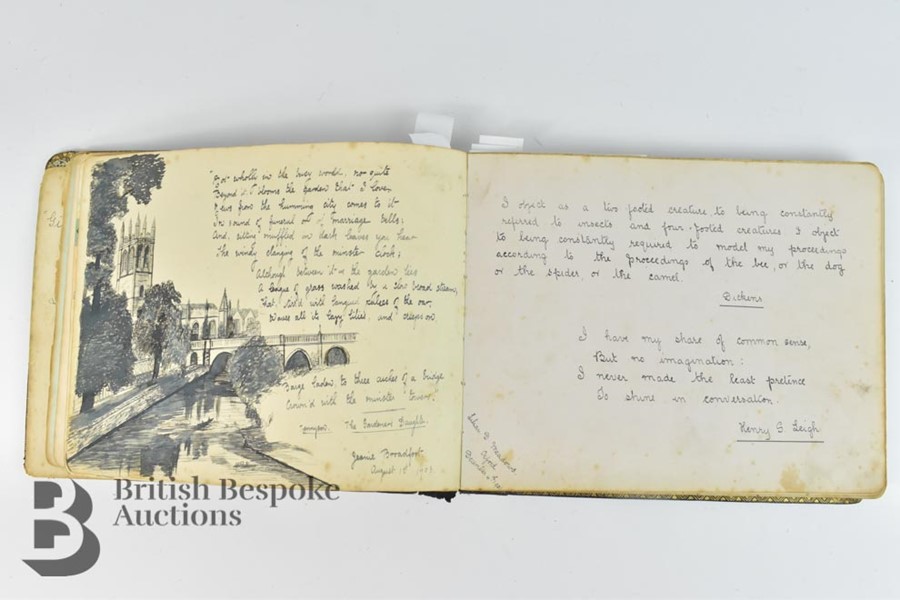 "Not wholly in the busy world, nor quite
Beyond it blooms the garden that I love,
News from the humming city comes to it
In sound of funeral or of marriage bells;
And, sitting muffled in dark leaves you hear
The windy clanging of the minster clock;
Although between it & the garden lies
A league of grass washed by a slow broad stream,
That, stirr'd with languid pulses of the oar,
Waves all its lazy lilies, and creeps on,
Barge laden, to three arches of a bridge
Crown'd with the minster towers.
Tennyson. The Gardener's Daughter.
Jeanie Broadfoot
August 18th
I object as a two footed creature, to being constantly
referred to insects and four-footed creatures. I object
to being constantly required to model my proceedings
according to the proceedings of the bee, or the dog
or the spider, or the camel.
Dickens
I have my share of common sense,
But no imagination:
I never made the least pretence
To shine in conversation.
Henry S. Leigh
British Bespoke
Auctions
B